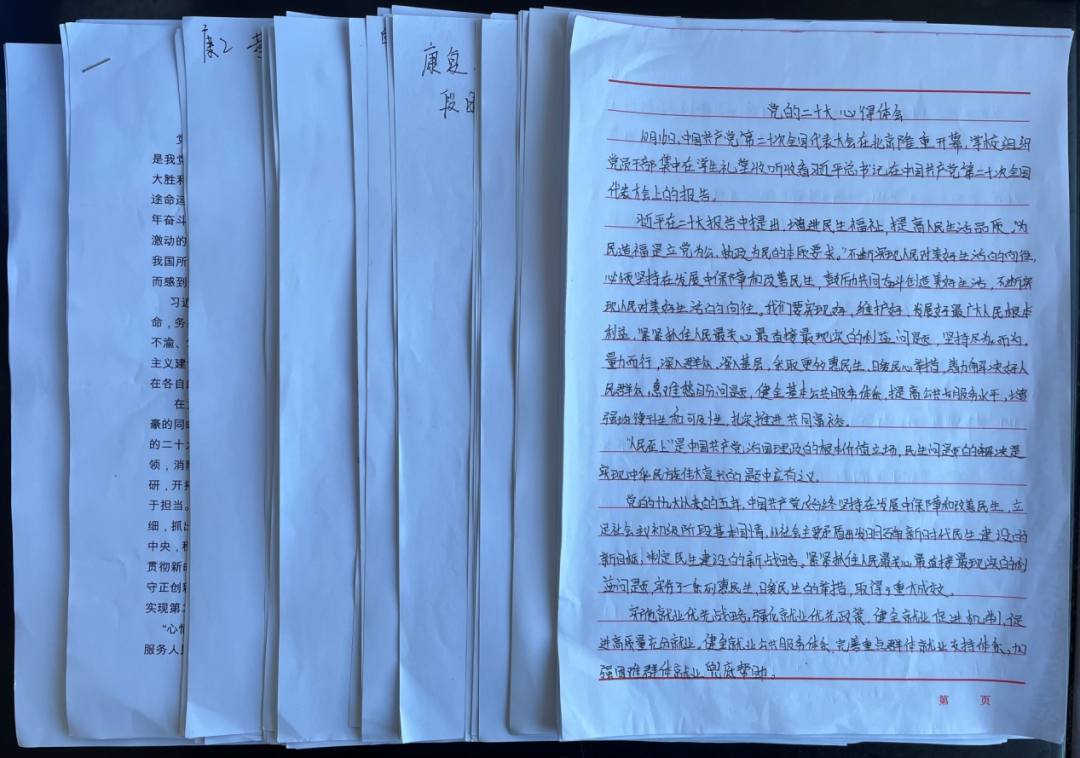 党
是我党
大胜利
途命运
年奋斗
激动的
我国所
而感到
习近
命，务
不渝、
主义建
在各自
在
豪的同
的二十大
领，消
研，开拓
于担当。
细，抓出
中央，
贯彻新
守正创新
实现第
“心情
服务人
康2
康复
段
党的二十大心得体会
10月16日，中国共产党第二十次全国代表大会在北京隆重开幕，学校组织
党员干部集中在学生礼堂收听收看习近平总书记在中国共产党第二十次全国
代表大会上的报告。
习近平在二十大报告中提出，增进民生福祉，提高人民生活品质。“为
民造福是立党为公、执政为民的本质要求。”不断实现人民对美好生活的向往，
必须坚持在发展中保障和改善民生，鼓励共同奋斗创造美好生活，不断实
现人民对美好生活的向往。我们要实现好、维护好、发展好最广大人民根本
利益，紧紧抓住人民最关心最直接最现实的利益问题，坚持尽力而为、
量力而行，深入群众、深入基层，采取更多惠民生、暖民心举措，着力解决好人
民群众急难愁盼问题，健全基本公共服务体系，提高公共服务水平，增
强均衡性和可及性，扎实推进共同富裕。
“人民至上”是中国共产党治国理政的根本价值立场，民生问题的解决是
实现中华民族伟大复兴的题中应有之义。
党的十九大以来的五年，中国共产党始终坚持在发展中保障和改善民生，立
足社会主义初级阶段基本国情，从社会主要矛盾出发明确新时代民生建设的
新目标，制定民生建设的新战略。紧紧抓住人民最关心最直接最现实的利
益问题，实行一系列惠民生、暖民生的举措，取得了重大成效。
实施就业优先战略，强化就业优先政策，健全就业促进机制，促
进高质量充分就业。健全就业公共服务体系，完善重点群体就业支持体系，加
强困难群体就业兜底帮助。
第 页